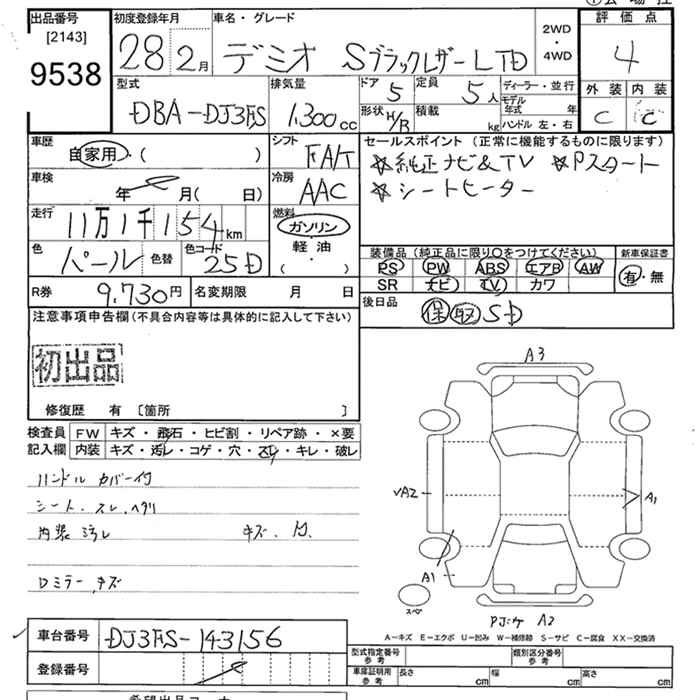 出品番号 初度登録年月 車名・グレード 評価点
[2143] 9538
28年2月 デミオ Sブラックレザー LTD 2WD・4WD 4
型式 排気量 ドア 定員 ディーラー・並行 外装 内装
DBA-DJ3FS 1.300cc 5 5人 モデル年式 年 C C
形状 H/B 積載 kg ハンドル 左・右
車歴 自家用・( ) シフト FA/T セールスポイント (正常に機能するものに限ります)
☆純正ナビ&TV ☆Pスタート
☆シートヒーター
車検 年 月( 日) 冷房 AAC
走行 11万1千154km 燃料 ガソリン 軽油・( ・ )
色 パール 色替 色コード 25D
装備品 (純正品に限り○をつけてください) 新車保証書
PS PW ABS エアB AW 有・無
SR ナビ TV カワ
R券 9.730円 名変期限 月 日 後日品 保 取 SD
注意事項申告欄 (不具合内容等は具体的に記入して下さい)
初出品
修復歴 有 [箇所 ]
検査員 FW キズ・飛石・ヒビ割・リペア跡・×要
記入欄 内装 キズ・汚レ・コゲ・穴・スレ・キレ・破レ
ハンドル カバー付
シート スレ、ヘタリ
内装 汚レ キズ
Dミラー キズ
A3
A2
A1
A1
スペア
A2
A-キズ E-エクボ U-凹み W-補修跡 S-サビ C-腐食 XX-交換済
車台番号 DJ3FS-143156
登録番号
型式指定番号 参考 類別区分番号 参考
車庫証明用 参考 長さ cm 幅 cm 高さ cm